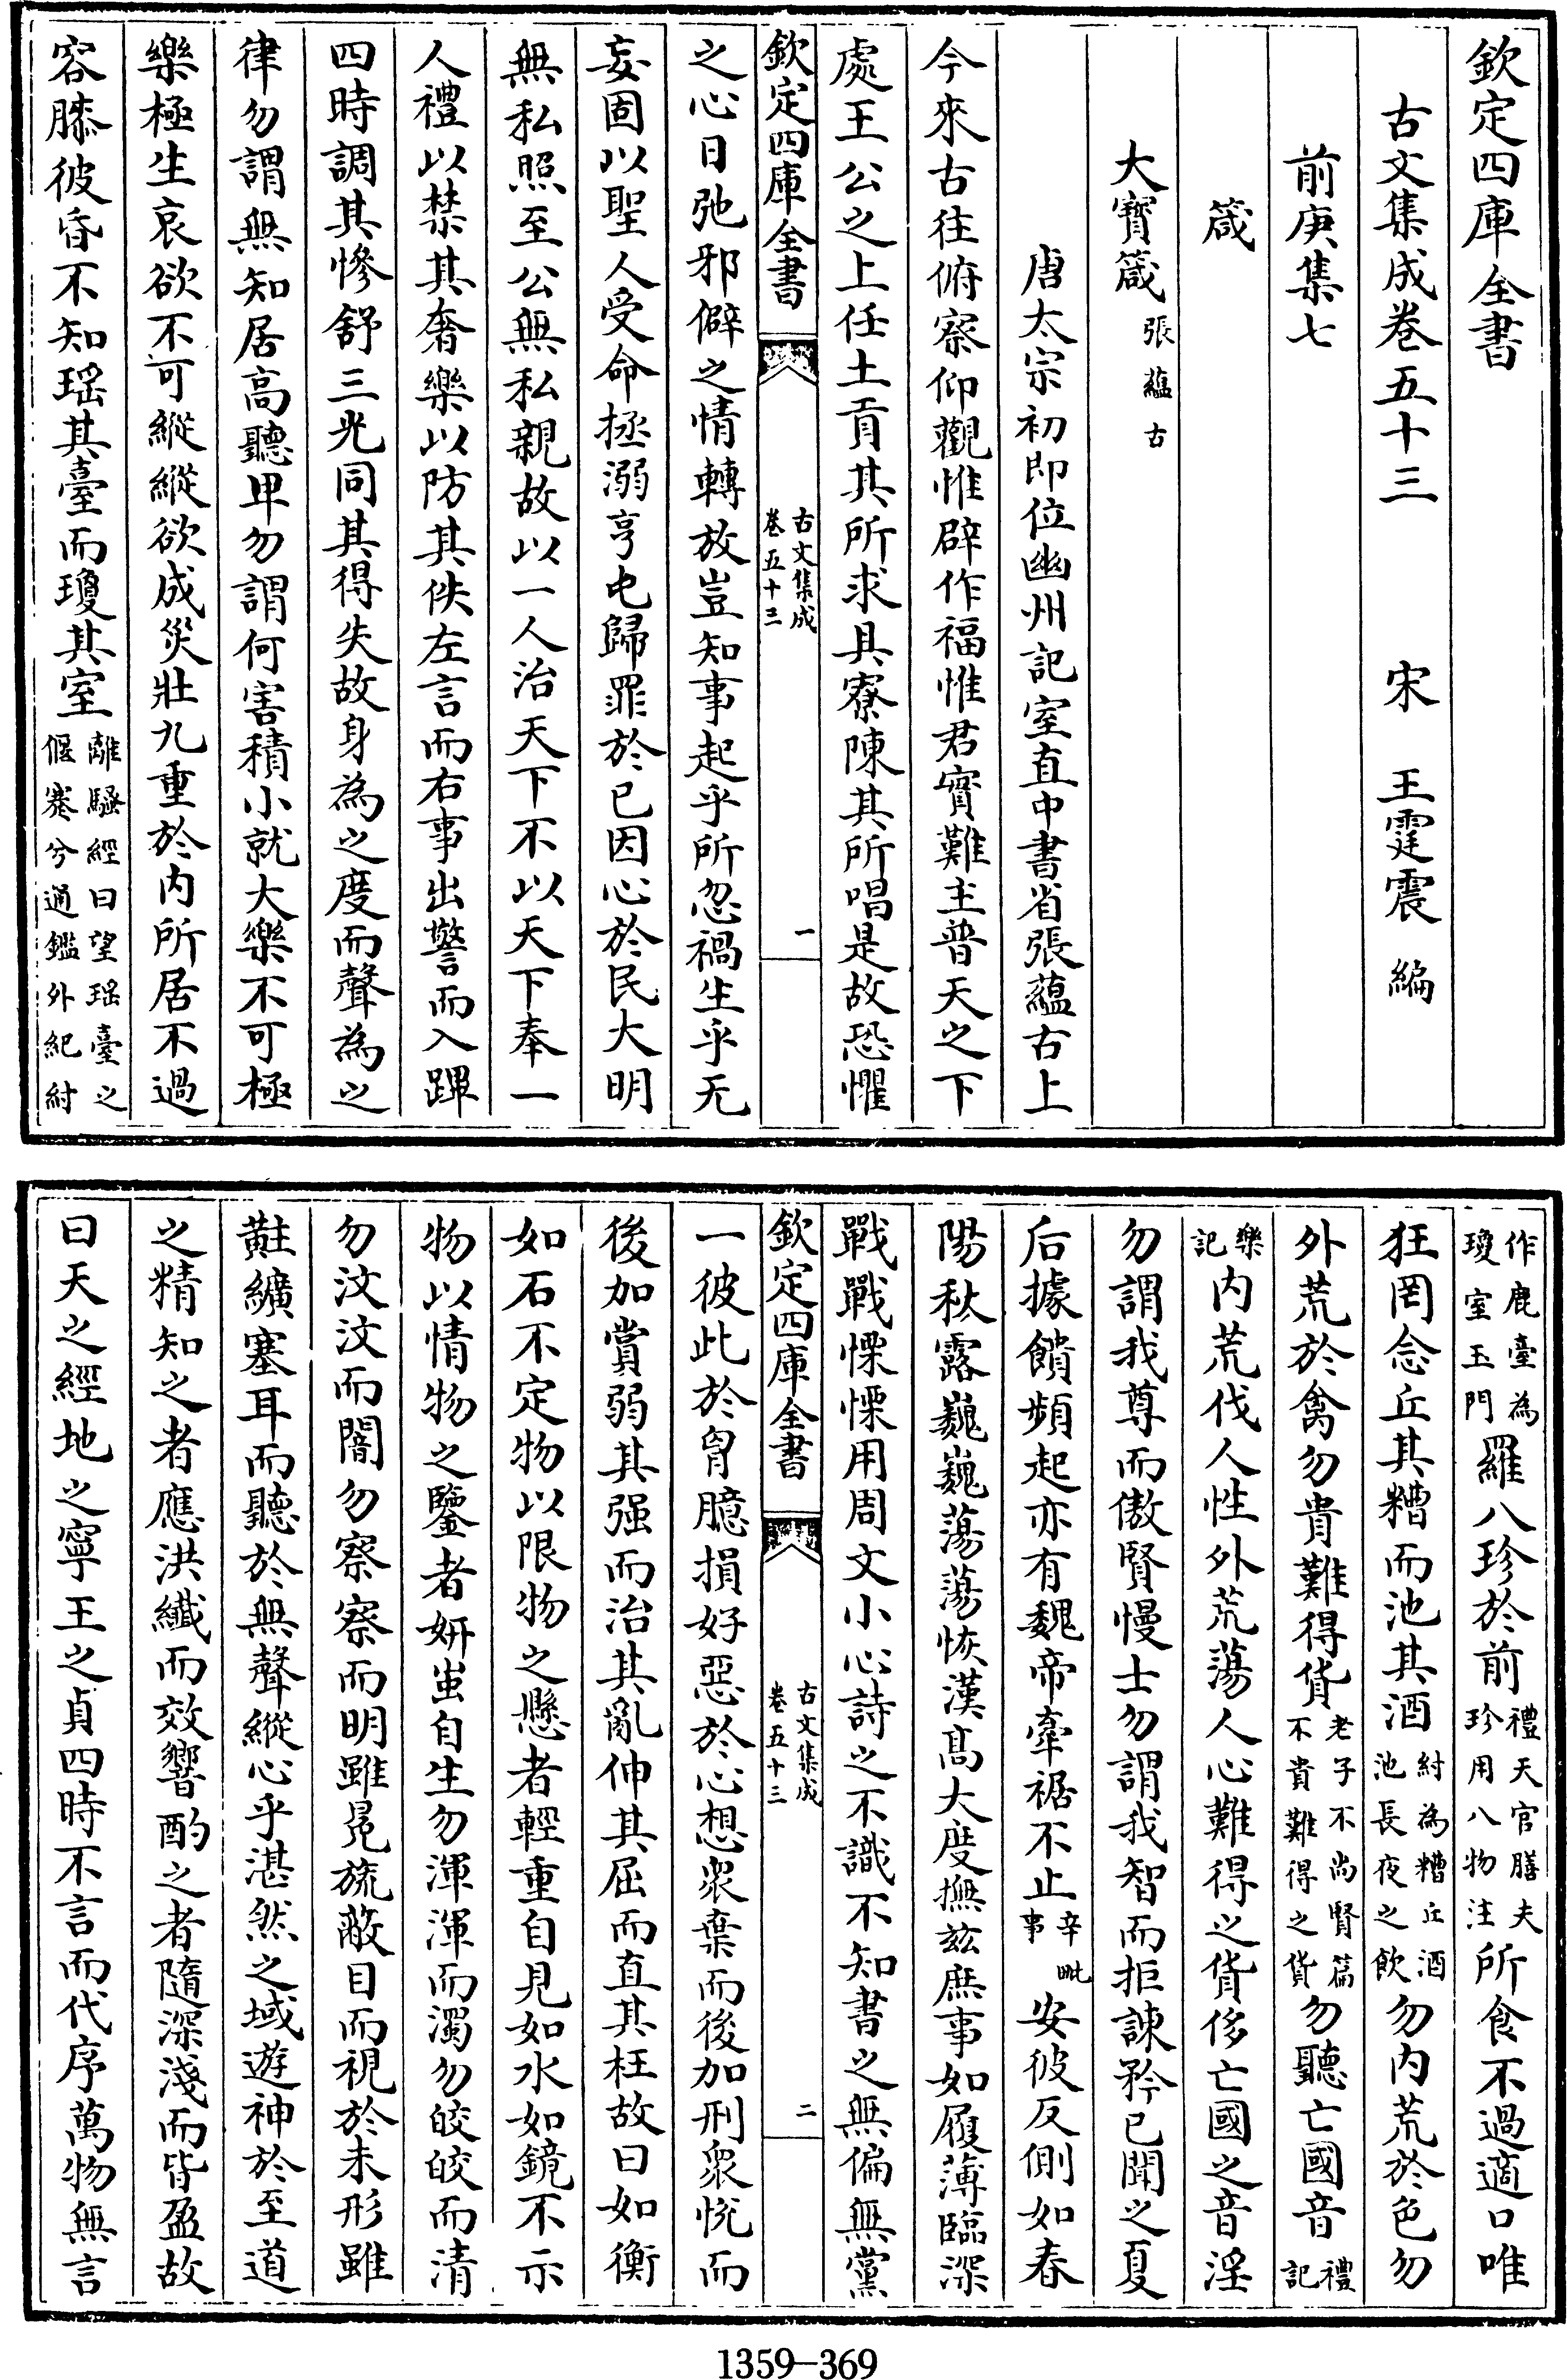 欽定四庫全書
古文集成卷五十三　宋　王霆震　編
前庚集七
箴
大寳箴張藴古
唐太宗初即位幽州記室直中書省張藴古上
今來古往俯察仰觀惟辟作福惟君實難主普天之下
處王公之上任土貢其所求具寮陳其所唱是故恐懼
欽定四庫全書　古文集成卷五十三　一
之心日弛邪僻之情轉放豈知事起乎所忽禍生乎无
妄固以聖人受命拯溺亨屯歸罪於已因心於民大明
無私照至公無私親故以一人治天下不以天下奉一
人禮以禁其奢樂以防其佚左言而右事出警而入蹕
四時調其慘舒三光同其得失故身為之度而聲為之
律勿謂無知居高聽卑勿謂何害積小就大樂不可極
樂極生哀欲不可縱縱欲成災壯九重於内所居不過
容膝彼昏不知瑶其臺而瓊其室離騷經曰望瑶臺之偃蹇兮通鑑外紀紂
作鹿臺為瓊室玉門羅八珍於前禮天官膳夫珍用八物注所食不過適口唯
狂罔念丘其糟而池其酒紂為糟丘酒池長夜之飲勿内荒於色勿
外荒於禽勿貴難得貨老子不尚賢篇不貴難得之貨勿聽亡國音禮記
樂記内荒伐人性外荒蕩人心難得之貨侈亡國之音淫
勿謂我尊而傲賢慢士勿謂我智而拒諫矜已聞之夏
后據饋頻起亦有魏帝牽裾不止辛毗事安彼反側如春
陽秋露巍巍蕩蕩恢漢髙大度撫兹庶事如履薄臨深
戰戰慄慄用周文小心詩之不識不知書之無偏無黨
欽定四庫全書　古文集成卷五十三　二
一彼此於胷臆損好惡於心想衆棄而後加刑衆悦而
後加賞弱其强而治其亂伸其屈而直其枉故曰如衡
如石不定物以限物之懸者輕重自見如水如鏡不示
物以情物之鑒者妍蚩自生勿渾渾而濁勿皎皎而清
勿汶汶而闇勿察察而明雖冕旒蔽目而視於未形雖
黈纊塞耳而聽於無聲縱心乎湛然之域遊神於至道
之精知之者應洪纎而效響酌之者隨深淺而皆盈故
曰天之經地之寧王之貞四時不言而代序萬物無言
1359—369